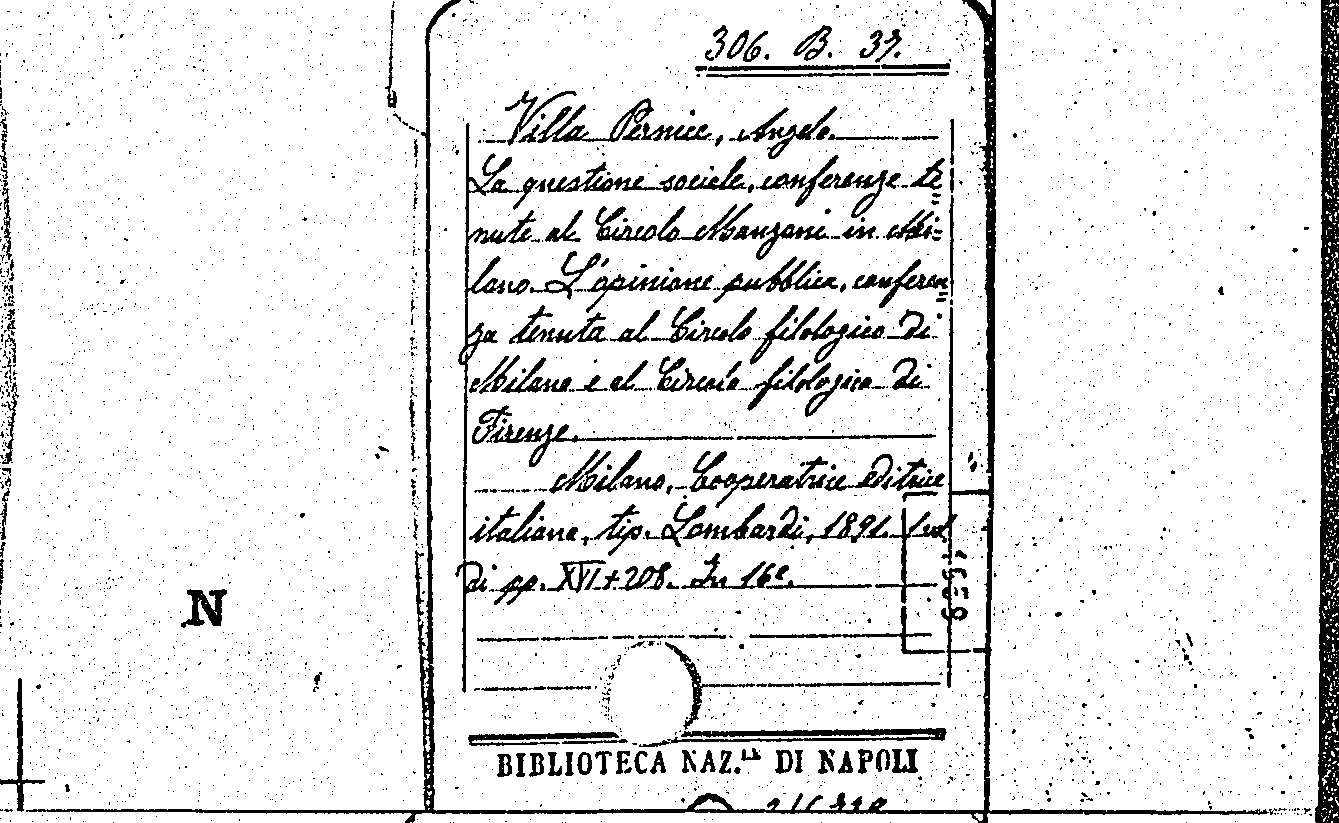 306. B. 39.
Villa Pernice, Angelo.
La questione sociale, conferenze te=
nute al Circolo Manzoni in Mi=
lano. L'opinione pubblica, conferen=
za tenuta al Circolo filologico di
Milano e al Circolo filologico di
Firenze.
Milano, Cooperatrice editrice
italiana, tip. Lombardi, 1891. 1 vol.
di pp. XVI+208. In 16°.
N
BIBLIOTECA NAZ.LE DI NAPOLI